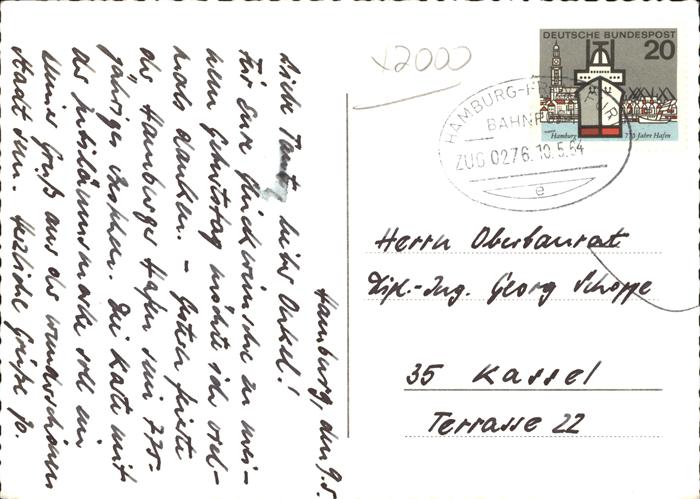 Hamburg, den 9.5.
Liebe Tante, lieber Onkel!
Für Eure Glückwünsche zu mei-
nem Geburtstag möchte ich viel-
mals danken. – Gestern feierte
der Hamburger Hafen sein 775-
jähriges Bestehen. Die Karte mit
der Jubiläumsmarke soll ein
kleiner Gruß aus der wunderschönen
Stadt sein. Herzliche Grüße
x2000
DEUTSCHE BUNDESPOST
20
Hamburg
775 Jahre Hafen
HAMBURG-FR FUR
BAHNP
ZUG 0276 10.5.64
e
Herrn Oberbaurat
Dipl.-Ing. Georg Schoppe
35 Kassel
Terrasse 22